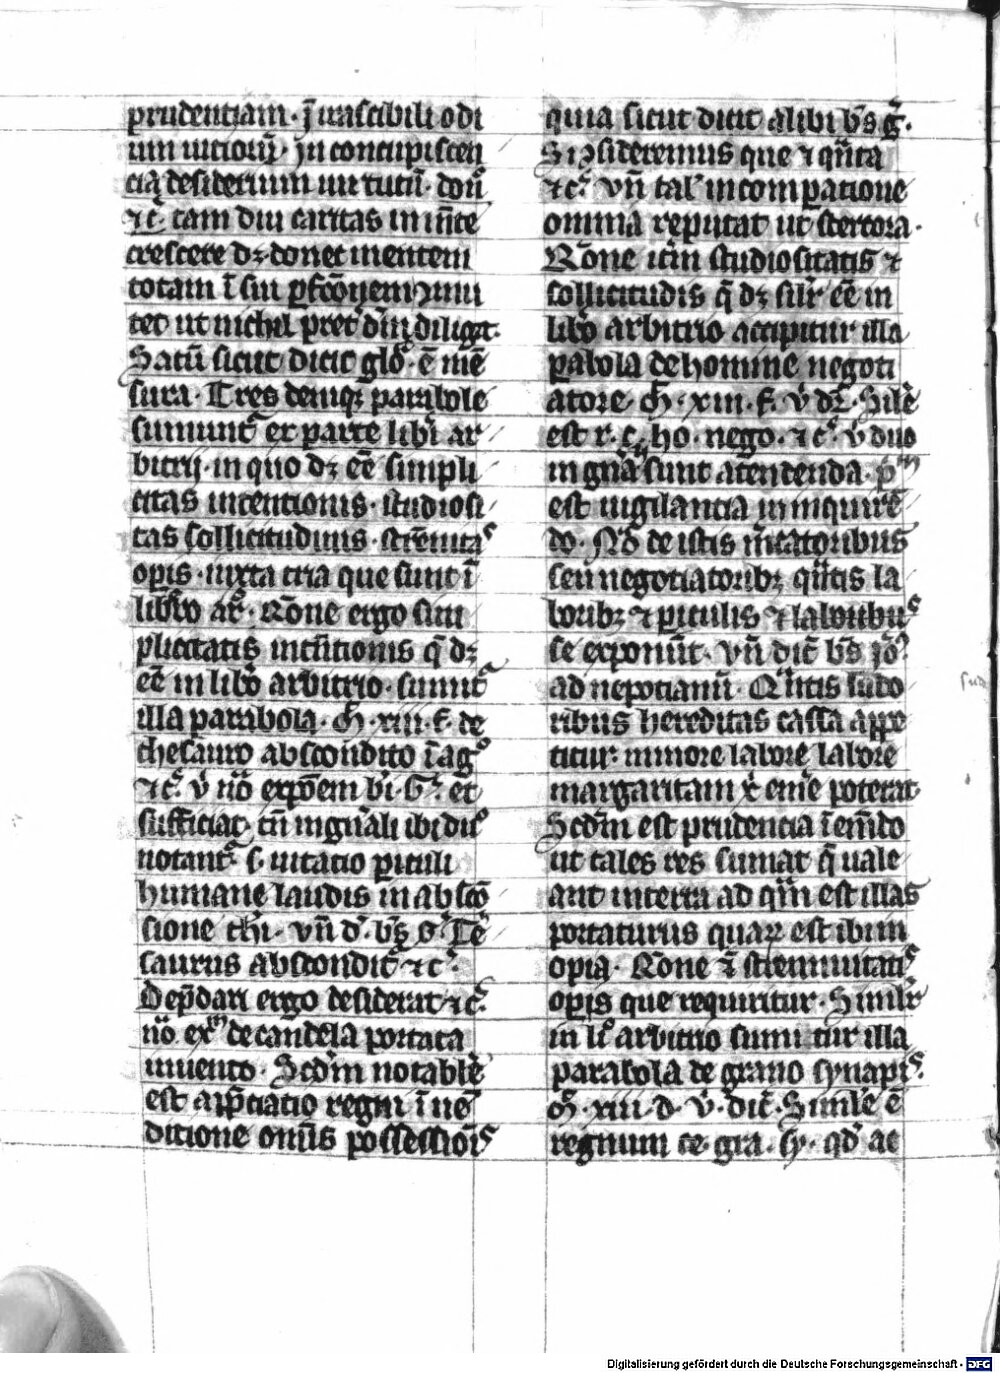 prudentiam · In irascibili odi
um uicioꝝ · In concupiscen
cia desiderium uirtutū · donū
⁊cͣ · tam diu caritas in mēte
crescere dꝫ donec mentem
totam ī sui ꝑfcōnem
tet ut nichil pret̕ dm̄ diligat ·
Satū sicut dicit glo ͣ · ē me
sura · Tres deniqꝫ parabole
sumunt᷑ ex parte libi ar
bitrij · in quo dꝫ eē simpli
citas intentionis · studiosi
tas sollicitudinis · strēnuitas
operis · iuxta tria que sunt ī
libero ar̄ · Rōne ergo sim
plicitatis intētionis q̄ dꝫ
eē in libo arbitrio · sumit᷑
illa parabola · M̄ · xiii · f · de
thesauro abscondito ī agº
⁊cͣ · v̄ nō expōem bi · G ͬ · et
sufficiat · tn̄ in gnali ibi duo
notant᷑ · s · uitatio ꝑiculi
humane laudis in absco
sione thi · vn̄ d ͬ · bs̄ g ͬ Te
saurus abscondit᷑ ⁊cͣ ·
Dep̄dari ergo desiderat ⁊cͣ ·
nō exm de candela portata
in uento · Scdm notabile
est app̄ciatio regni ī ue
ditione om̄is possessiois
quia sicut dicit alibi bs̄ g ͬ ·
Si ꝯsideremus que ⁊ quāta
⁊cͣ vn̄ tal' in comparatione
omnia reputat ut stercora ·
Rōne itē studiositatis ⁊
sollicitudis q̄ dꝫ silr eē in
libo arbitrio accipitur illa
pabola de homine negoti
atore M̄ · xiii · f · v̄ dr̄ · Simile
est r · c · ho · nego · ⁊cͣ · v̄ duo
in gnāli sunt atendenda · pm
est uigilantia in inquire
do · Nō de istis mercatoribus
seu negotiatoribꝫ quātis la
boribꝫ ⁊ ꝑiculis ⁊ laboribus
se exponūt · vn̄ dic̄ bs̄ Jo ͬ
ad nepotianū · Quātis sudo
ribus hereditas cassa appe
titur · minore labore labore
margaritam xͥ emi poterat
Scdm est prudencia ī emēdo
ut tales res sumat q̄ uale
ant in terra ad quā est illas
portaturus quaꝝ est ibi in
opia · Rōne ī strennuitatis
operis que requiritur · Similr
in liº arbitrio sumitur illa
parabola de grano synapis ·
M̄ · xiii · d · v̄ · dic̄ · Simile ē
regnum ce · gra · sy · qd ac